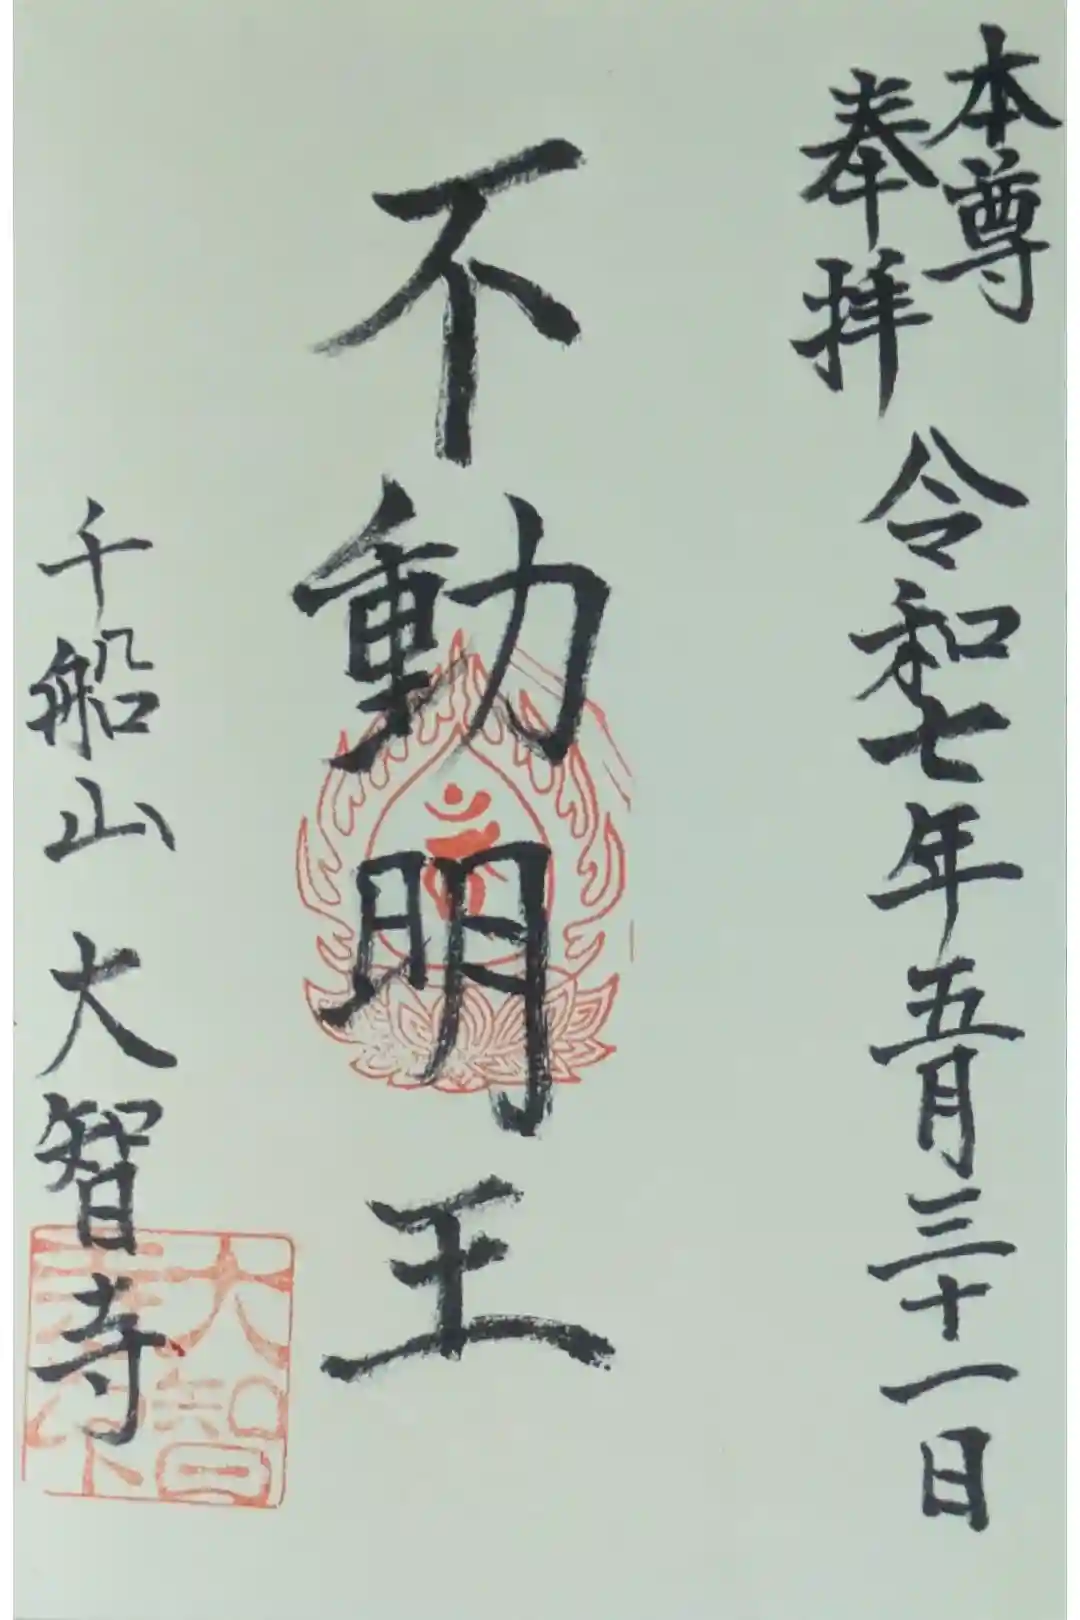 本尊
奉拝
令和七年五月三十一日
不動明王
千船山 大智寺
大智